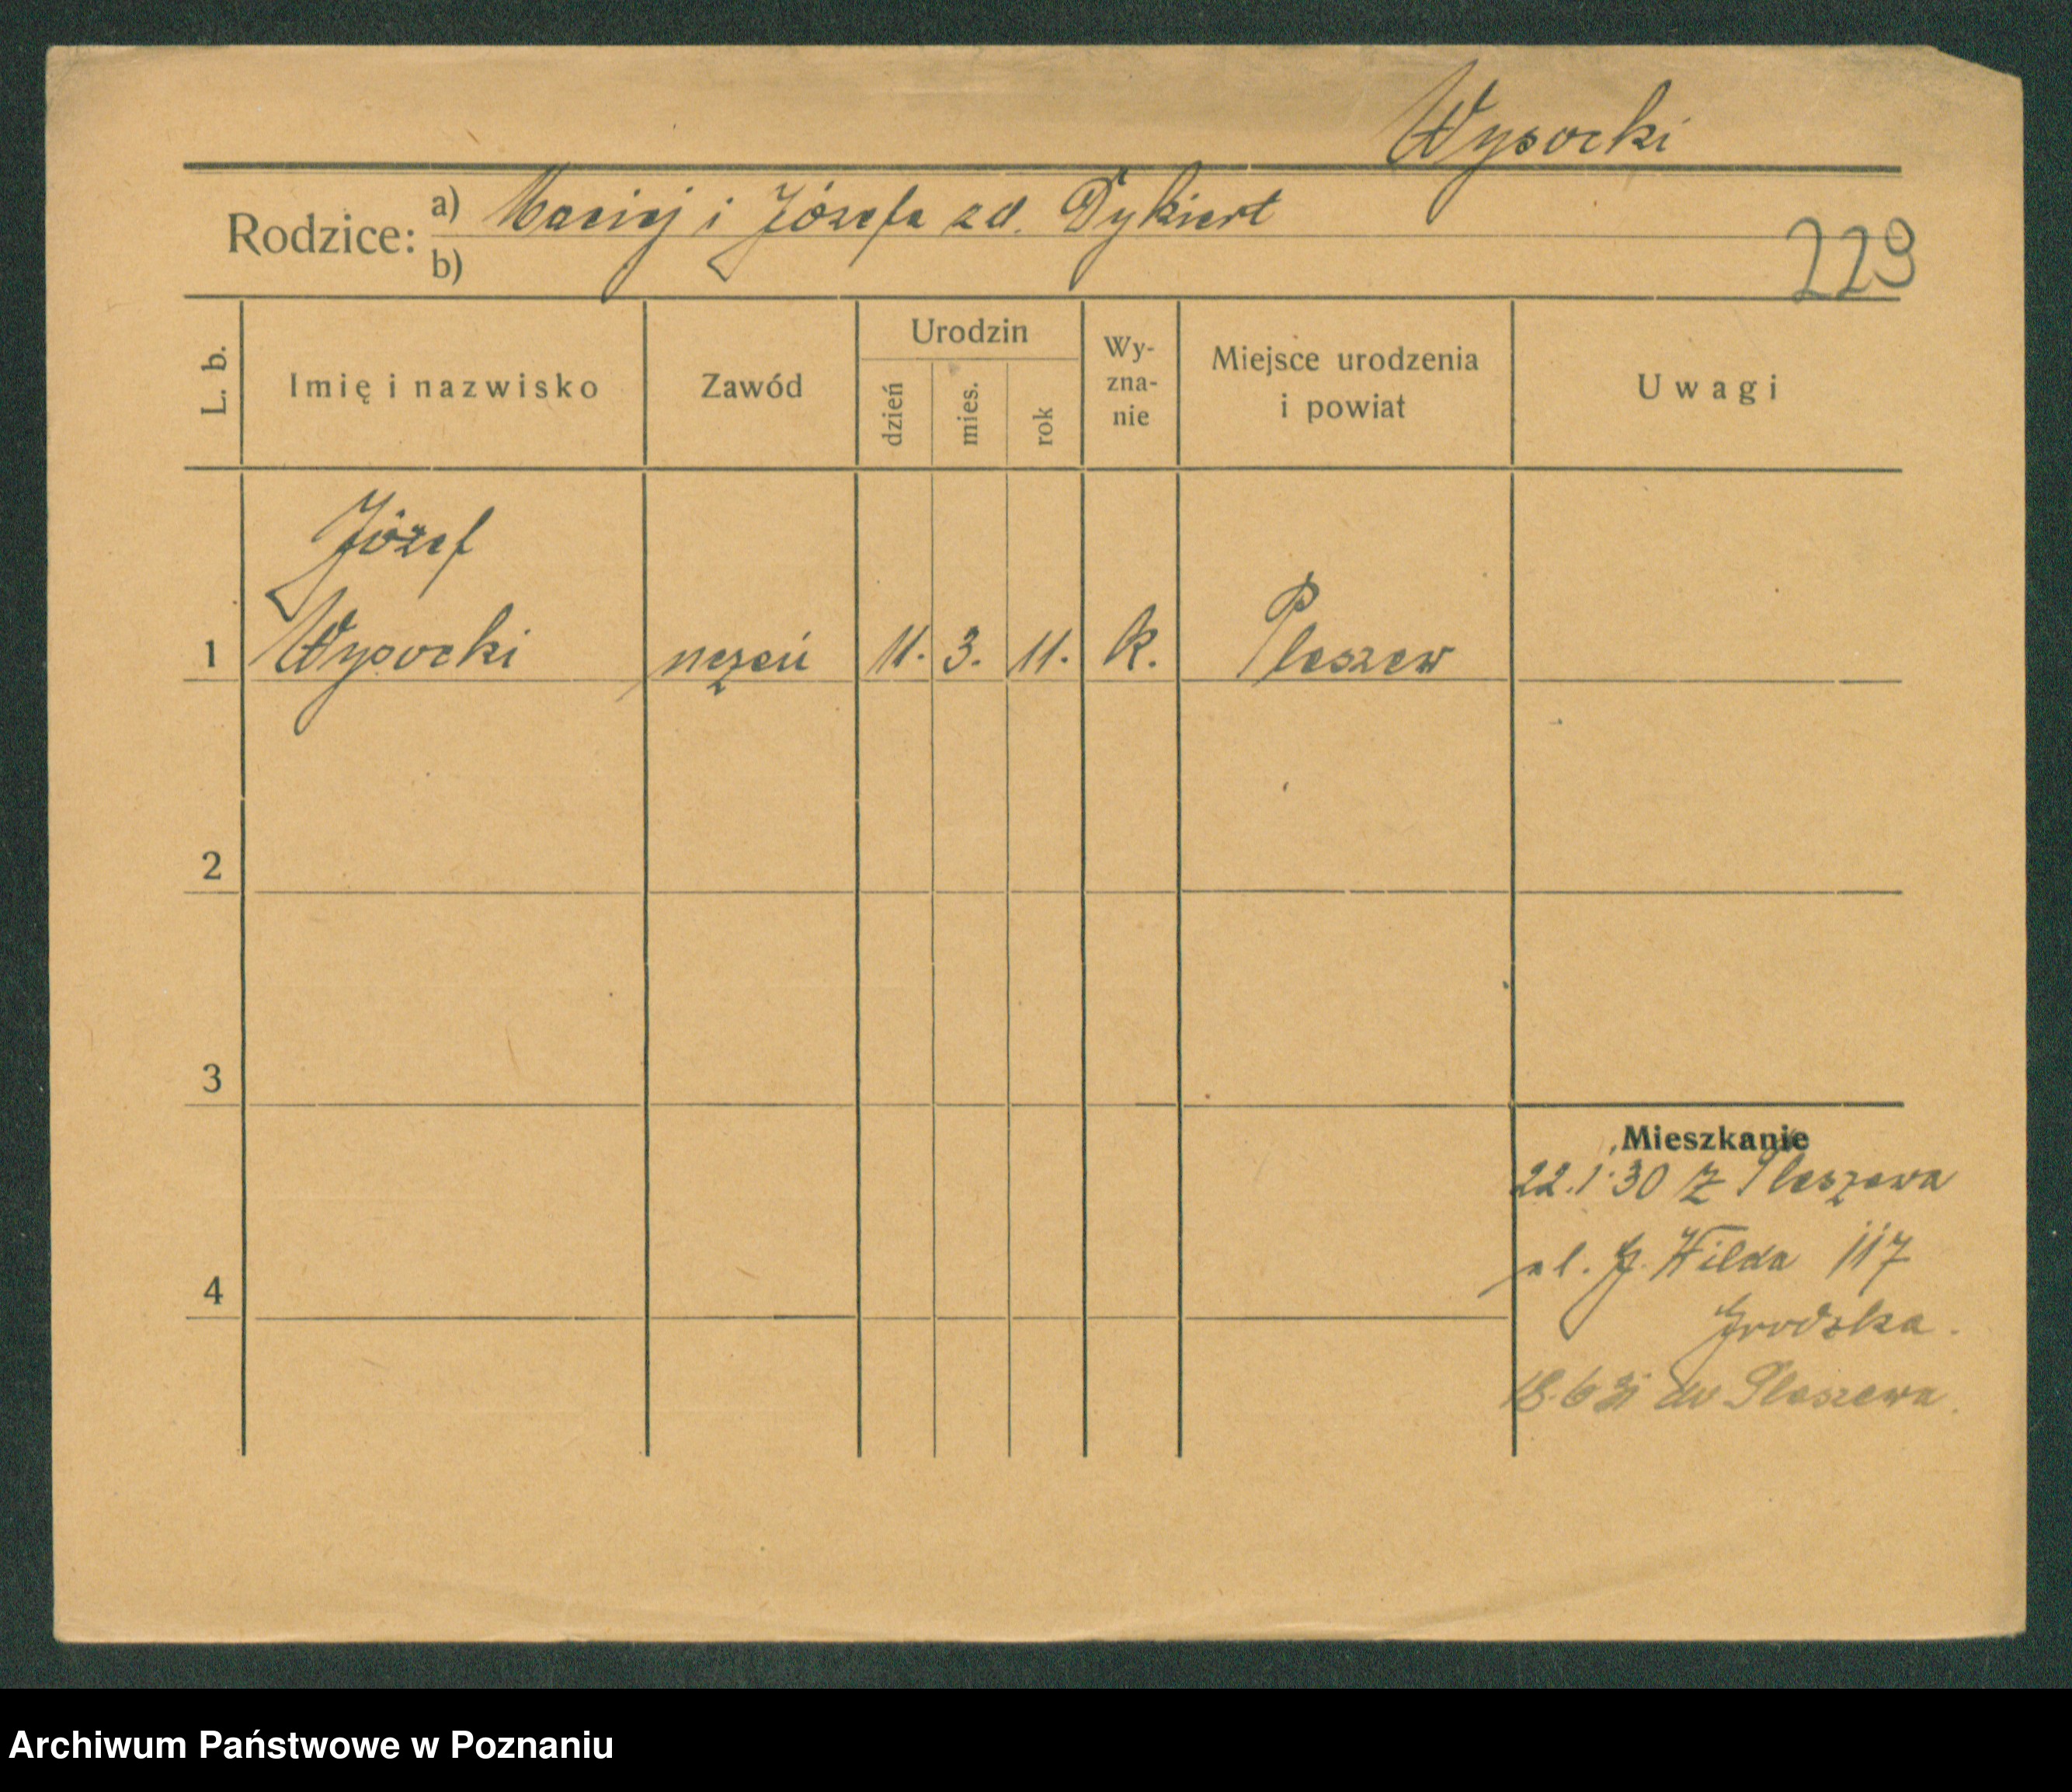 Wysocki
Rodzice: a) Maciej i Józefa zd. Dykiert
b)
229
L. b. Imię i nazwisko Zawód Urodzin dzień mies. rok Wy-zna-nie Miejsce urodzenia i powiat Uwagi
Józef
1 Wysocki uczeń 11. 3. 11. k. Pleszew
2
3
Mieszkanie
22.1.30 z Pleszewa
4 ul. G. Wilda 117
Grodzka.
18.6 31 do Pleszewa.
Archiwum Państwowe w Poznaniu